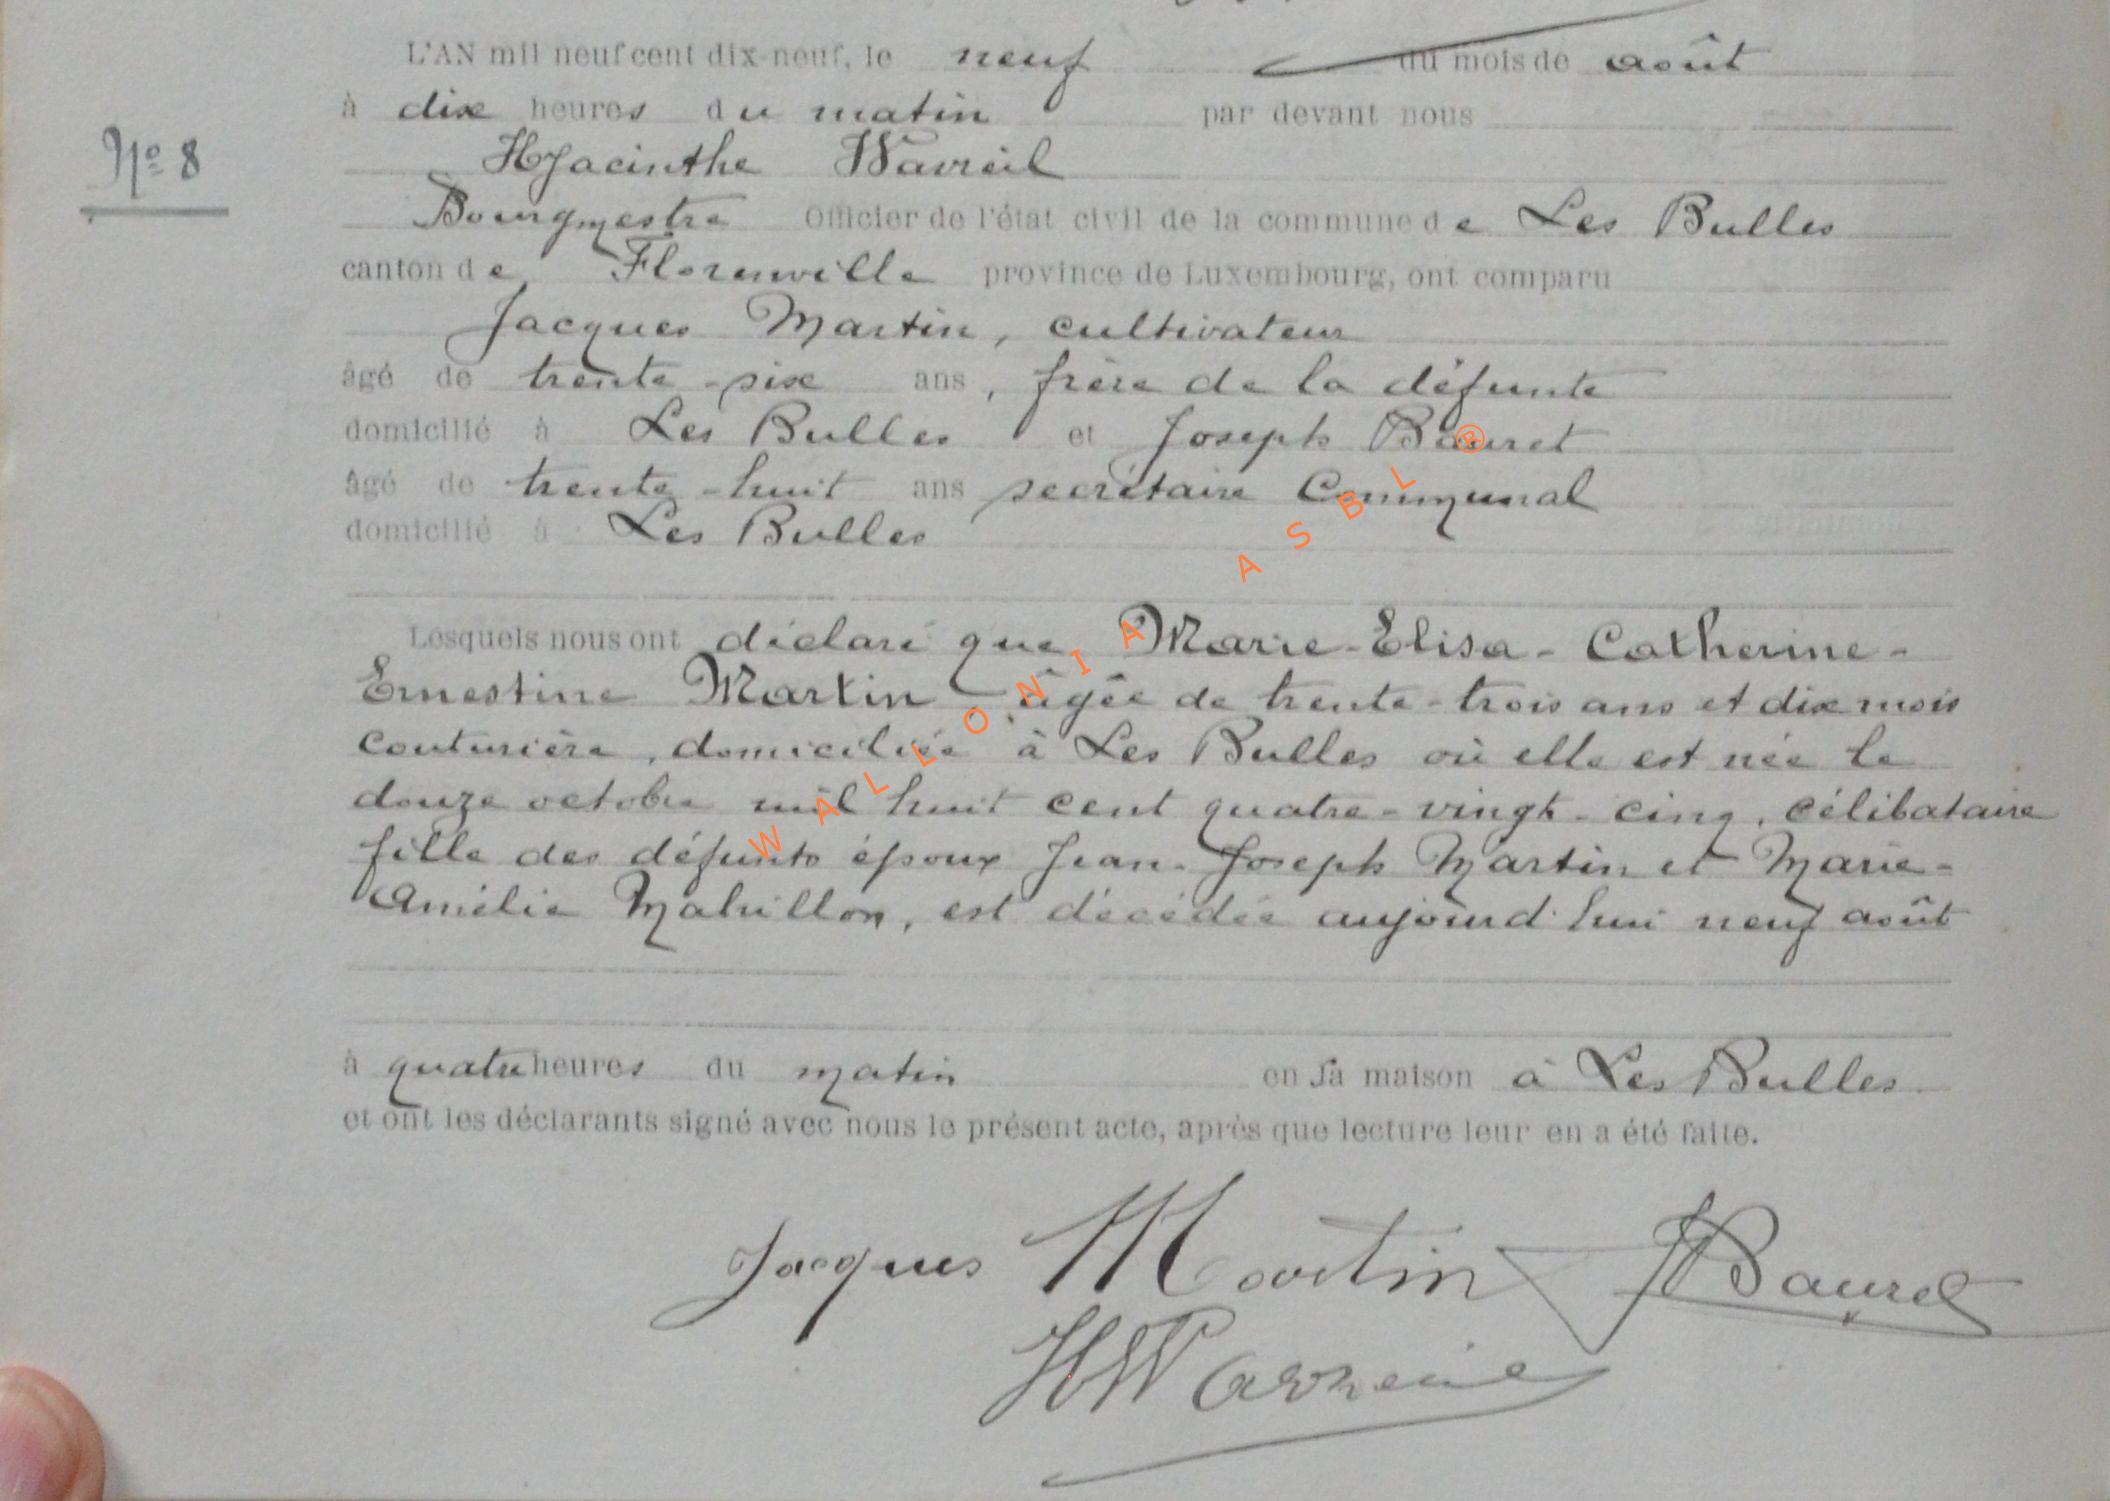 L'AN mil neuf cent dix-neuf, le neuf du mois de août
à dix heures du matin par devant nous
N° 8
Hyacinthe Wavreil
Bourgmestre Officier de l'état civil de la commune de Les Bulles
canton de Florenville province de Luxembourg, ont comparu
Jacques Martin, cultivateur
âgé de trente-six ans, frère de la défunte
domicilié à Les Bulles et Joseph Bauret
âgé de trente-huit ans secrétaire Communal
domicilié à Les Bulles
Lesquels nous ont déclaré que Marie-Elisa-Catherine-
Ernestine Martin âgée de trente-trois ans et dix mois
couturière, domiciliée à Les Bulles où elle est née le
douze octobre mil huit cent quatre-vingt-cinq, célibataire
fille des défunts époux Jean-Joseph Martin et Marie-
Amélie Mahillon, est décédée aujourd'hui neuf août
à quatre heures du matin en sa maison à Les Bulles.
et ont les déclarants signé avec nous le présent acte, après que lecture leur en a été faite.
Jacques Martin JBauret
HWavreil
WALLONIA ASBL ®